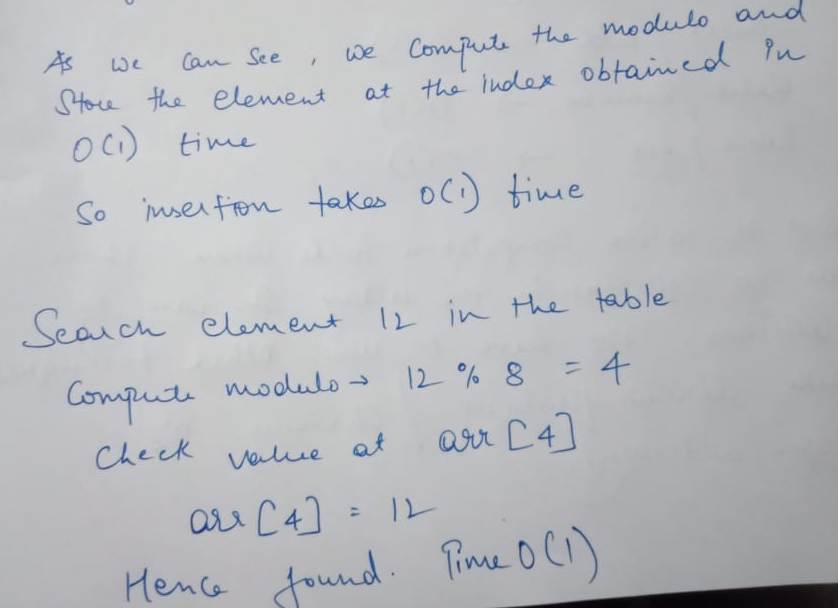 As we can see, we compute the modulo and
Store the element at the index obtained in
O(1) time
So insertion takes O(1) time
Search element 12 in the table
Compute modulo → 12 % 8 = 4
Check value at arr [4]
arr [4] = 12
Hence found. Time O(1)